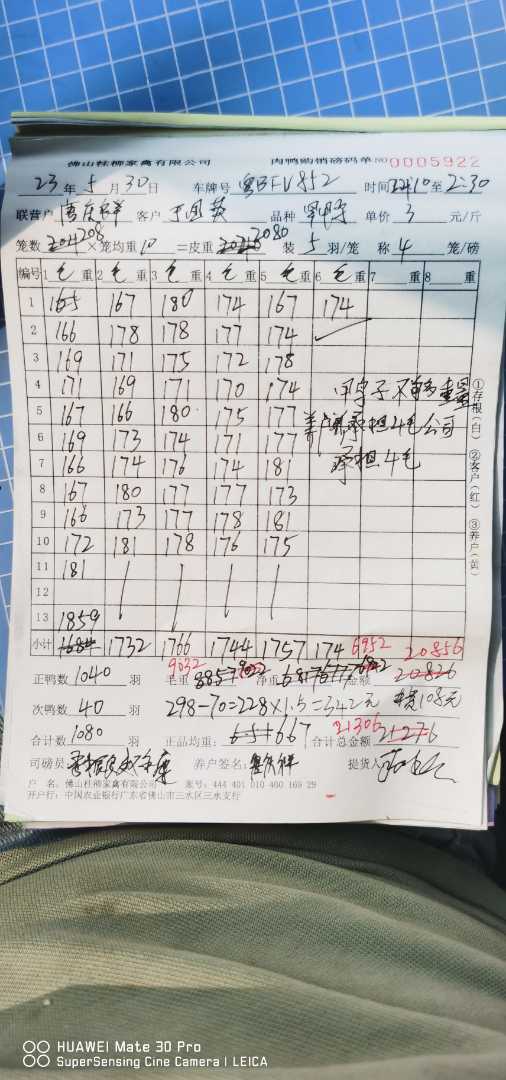 佛山桂柳家禽有限公司 肉鸭购销磅码单 NO 0005922
23年5月30日 车牌号 粤BFV852 时间 至2:30
联营户 客户 品种 单价 3 元/斤
笼数 208 ×笼均重 10 =皮重 2080 装 5 羽/笼 称 4 笼/磅
编号 1 毛 重 2 毛 重 3 毛 重 4 毛 重 5 毛 重 6 毛 重 7 重 8 重
1 165 167 180 174 167 174
2 166 178 178 177 174
3 169 171 175 172 178
4 171 169 171 170 174 甲子不够重量
5 167 166 180 175 177 养户承担4毛公司
6 169 173 174 171 177 承担4毛
7 166 174 176 174 181
8 167 180 177 177 173
9 166 173 177 178 181
10 172 181 178 176 175
11 181
12
13 1859
小计 1684 1732 1766 1744 1757 174 6952 20856
正鸭数 1040 羽 毛重 9032 8857 净重 金额 20826
次鸭数 40 羽 298-70=228×1.5=342元 108元
合计数 1080 羽 正品均重: 6.51 6.67 合计总金额 21306 21276
司磅员: 养户签名: 提货人
户 名: 佛山桂柳家禽有限公司 账号: 444 401 010 400 169 29
开户行: 中国农业银行广东省佛山市三水区三水支行
①存根(白) ②客户(红) ③养户(黄)
HUAWEI Mate 30 Pro
SuperSensing Cine Camera | LEICA